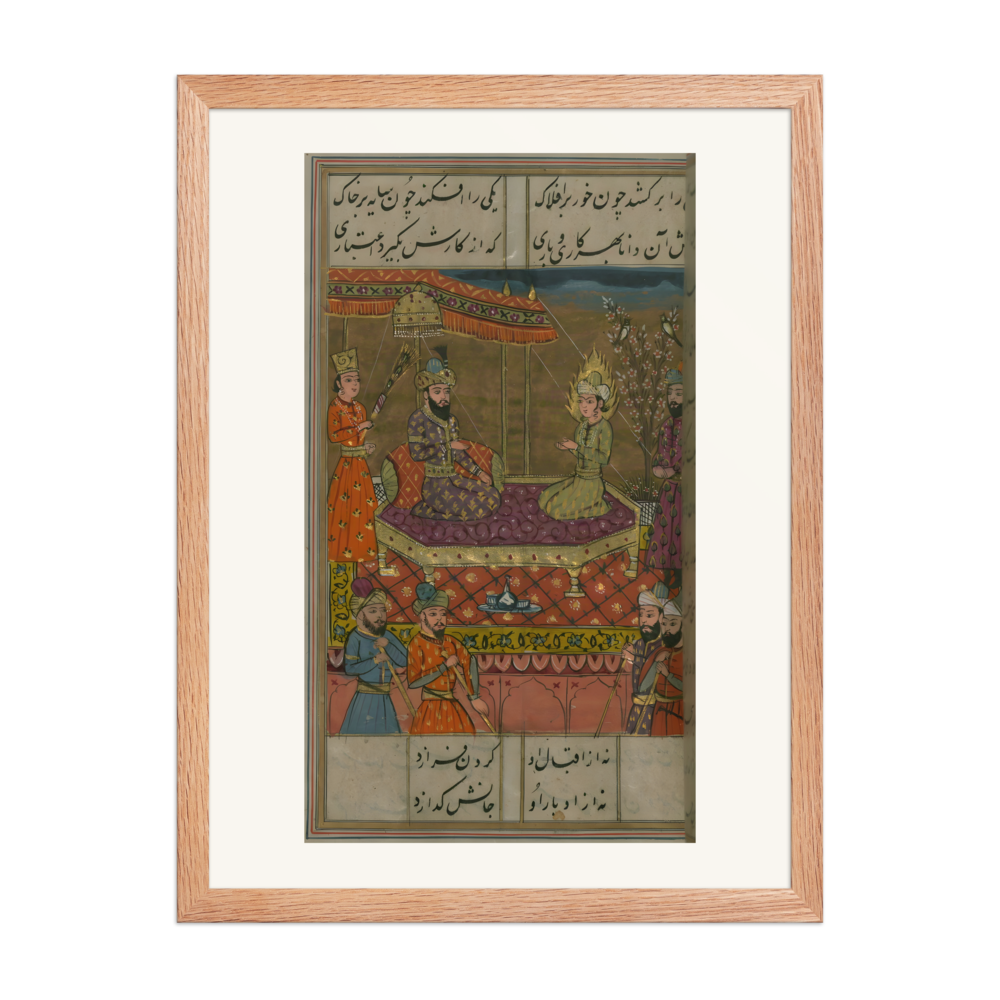 را بر کشد چون خور بر افلاک یکی را افکند چون سایه بر خاک
آن دانا بهر کاری و باری که از کارش بگیرد اعتباری
نه از اقبال او گردن فرازد
نه از ادبار او جانش گدازد